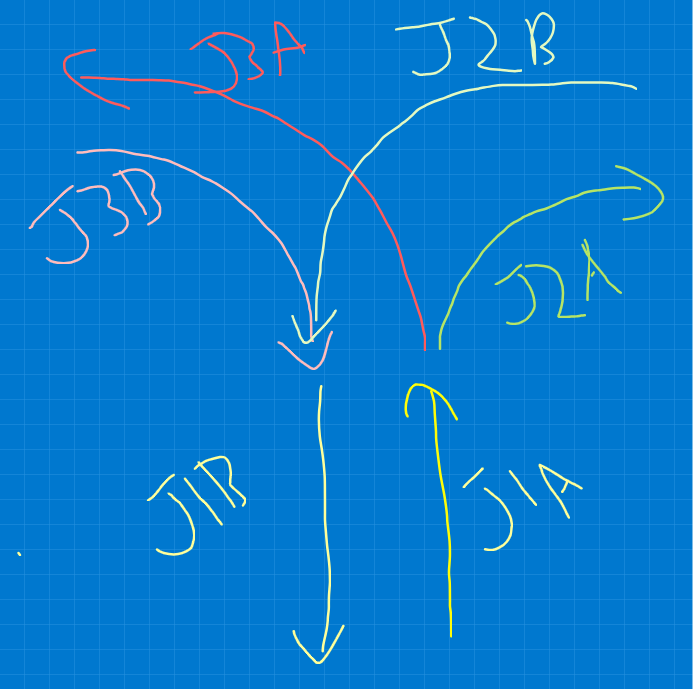 J3A
J2B
J3B
J2A
J1B
J1A